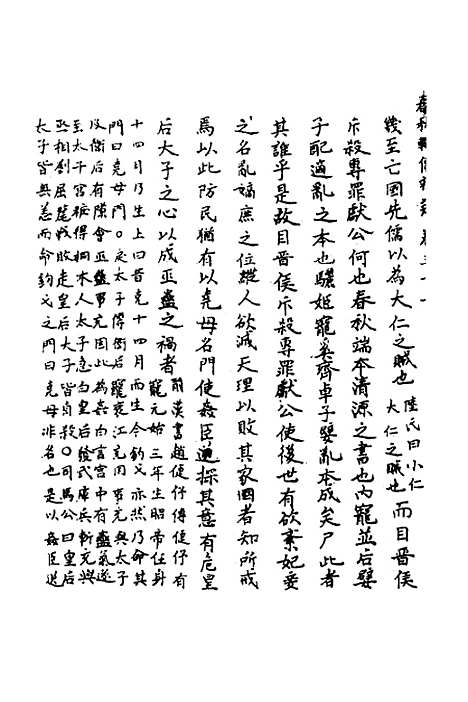 春秋輯傳辨疑 卷三十一
幾至亡國先儒以為大仁之賊也陸氏曰小仁大仁之賊也而目晋侯
斥殺專罪獻公何也春秋端本清源之書也内寵並后嬖
子配適亂之本也驪姬寵奚齊卓子嬖亂本成矣尸此者
其誰乎是故目晋侯斥殺專罪獻公使後世有欲棄妃妾
之名亂嫡庶之位縱人欲滅天理以敗其家國者知所戒
焉以此防民猶有以堯母名門使姦臣逆探其意有危皇
后太子之心以成巫蠱之禍者前漢書趙使伃傳使伃有
寵元始三年生昭帝任身
十四月乃生上曰昔堯十四月而生今鈎弋亦然乃命其
門曰堯母門○戾太子傳衛后寵衰江充用事充與太子
及衛后有隙會巫蠱事充因此為姦白言宮中有蠱氣遂
至太子宮掘得桐木人太子急白皇后發武庫兵斬充與
丞相劉屈氂戰敗走皇后太子皆自殺○司馬公曰皇后
太子皆無恙而命鈎弋之門曰堯母非名也是以姦臣逆